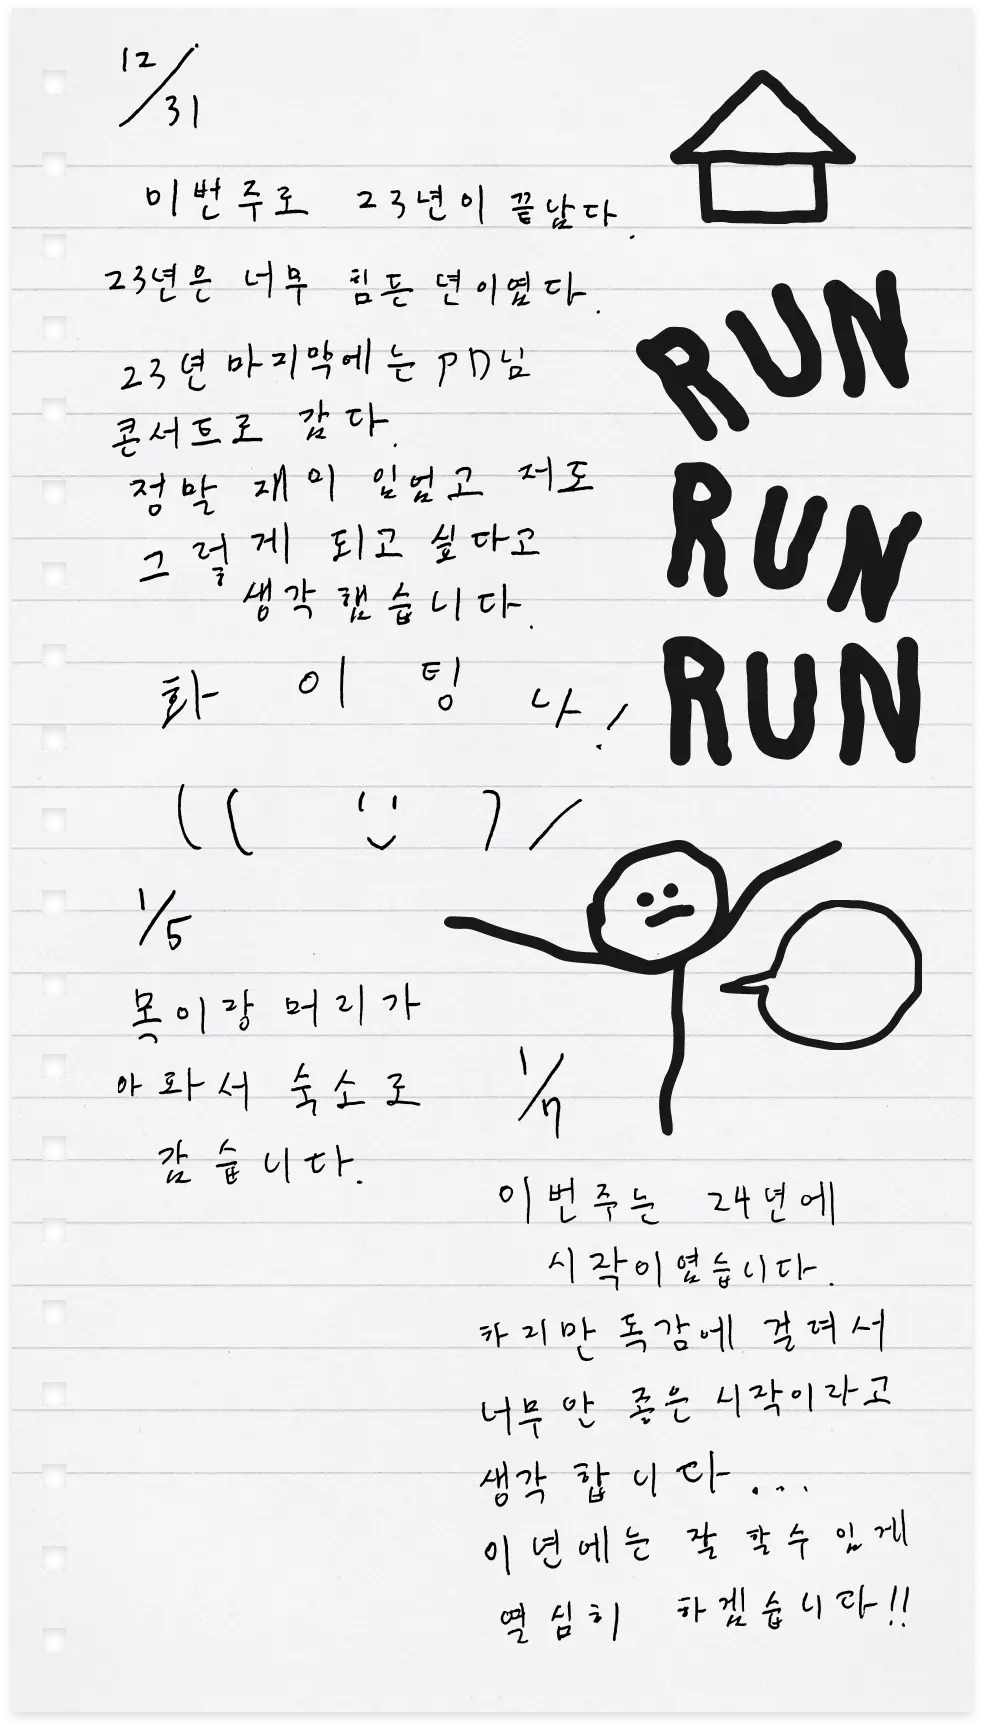 12/31
이번주로 23년이 끝남다.
23년은 너무 힘든 년이였다.
23년 마지막에는 PD님
콘서트로 감다.
정말 재미 임엄고 저도
그렇게 되고 싶다고
생각 햄습니다.
화이팅 나!
RUN
RUN
RUN
1/5
목이랑 머리가
아파서 숙소로
감습니다.
1/7
이번주는 24년에
시작이였습니다.
하지만 독감에 걸려서
너무 안 좋은 시작이라고
생각 합니다...
이 년에는 잘 할 수 있게
열심히 하겠습니다!!